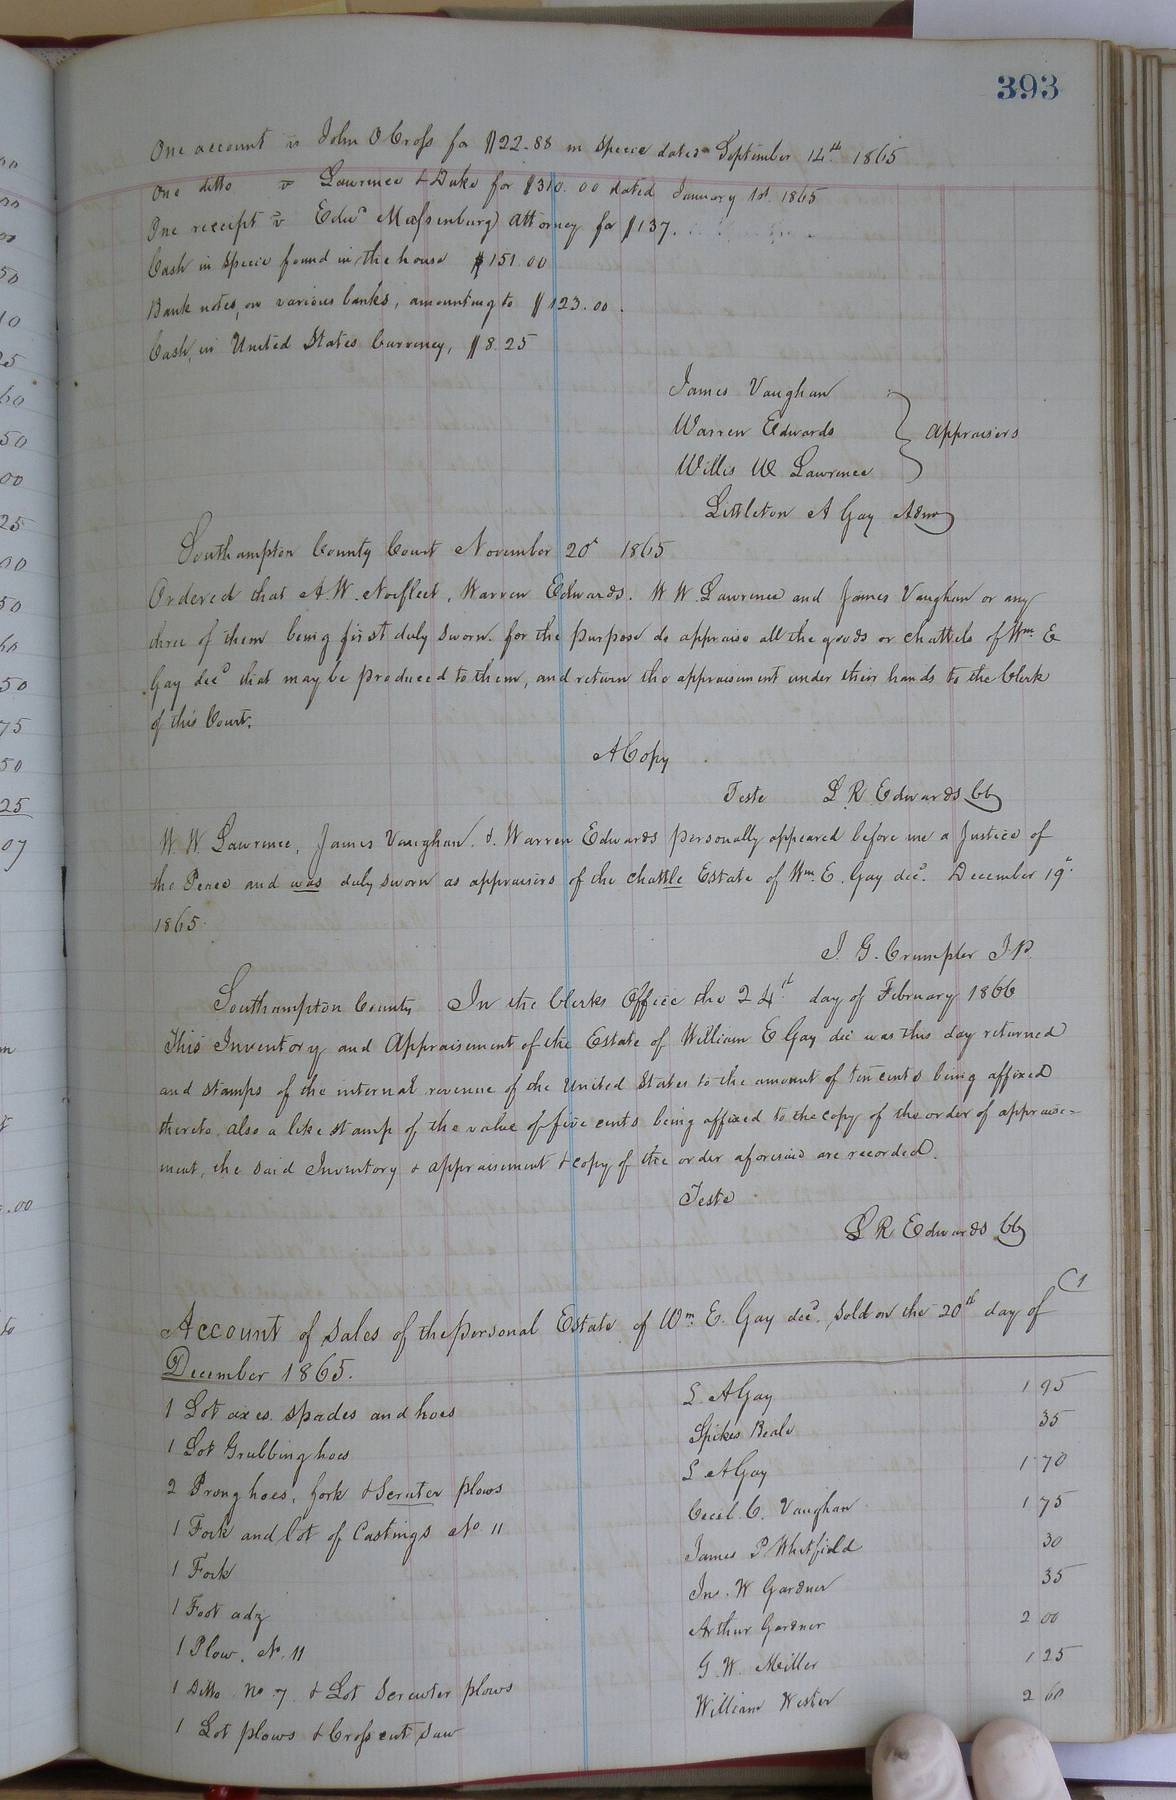 393
One account vs John O Cross for $22.88 in specie dated September 14th 1865
One ditto vs Lawrence & Duke for $310.00 dated January 1st 1865
One receipt vs Edwd Massenburg Attorney for $137.
Cash in specie found in the house $151.00
Bank notes, on various banks, amounting to $123.00.
Cash, in United States Currency, $8.25
James Vaughan
Warren Edwards } Appraisers
Willis W Lawrence
Littleton A Gay Admr
Southampton County Court November 20th 1865
Ordered that A. W. Norfleet, Warren Edwards. W W. Lawrence and James Vaughan or any
three of them being first duly sworn for the purpose do appraise all the goods or chattels of Wm E
Gay decd that may be produced to them, and return the appraisement under their hands to the Clerk
of this Court.
A Copy
Teste L R Edwards CC
W W Lawrence, James Vaughan, &. Warren Edwards personally appeared before me a Justice of
the Peace and was duly sworn as appraisers of the chattle Estate of Wm. E. Gay decd. December 19th
1865.
J. G. Crumpler J.P.
Southampton County In the Clerks Office the 24th day of February 1866
This Inventory and Appraisement of the Estate of William E Gay decd was this day returned
and stamps of the internal revenue of the United States to the amount of ten cents being affixed
thereto, also a like stamp of the value of five cents being affixed to the copy of the order of appraise=
ment, the said Inventory & appraisement & copy of the order aforesaid are recorded.
Teste
L R Edwards CC
Account of sales of the personal Estate of Wm. E. Gay decd. sold on the 20th day of
December 1865.
1 Lot axes. spades and hoes L. A Gay 1 95
1 Lot Grubbing hoes Spikes Beale 35
2 Prong hoes, fork & Scruter plows L A Gay 1 70
1 Fork and Lot of Castings No 11 Cecil. C. Vaughan 1 75
1 Fork James P Whitfield 30
1 Foot adz Jno. W Gardner 35
1 Plow. No. 11 Arthur Gardner 2 00
1 Ditto No 7 & Lot Scruter plows G. W. Miller 1 25
1 Lot plows & Cross cut saw William Wester 2 60